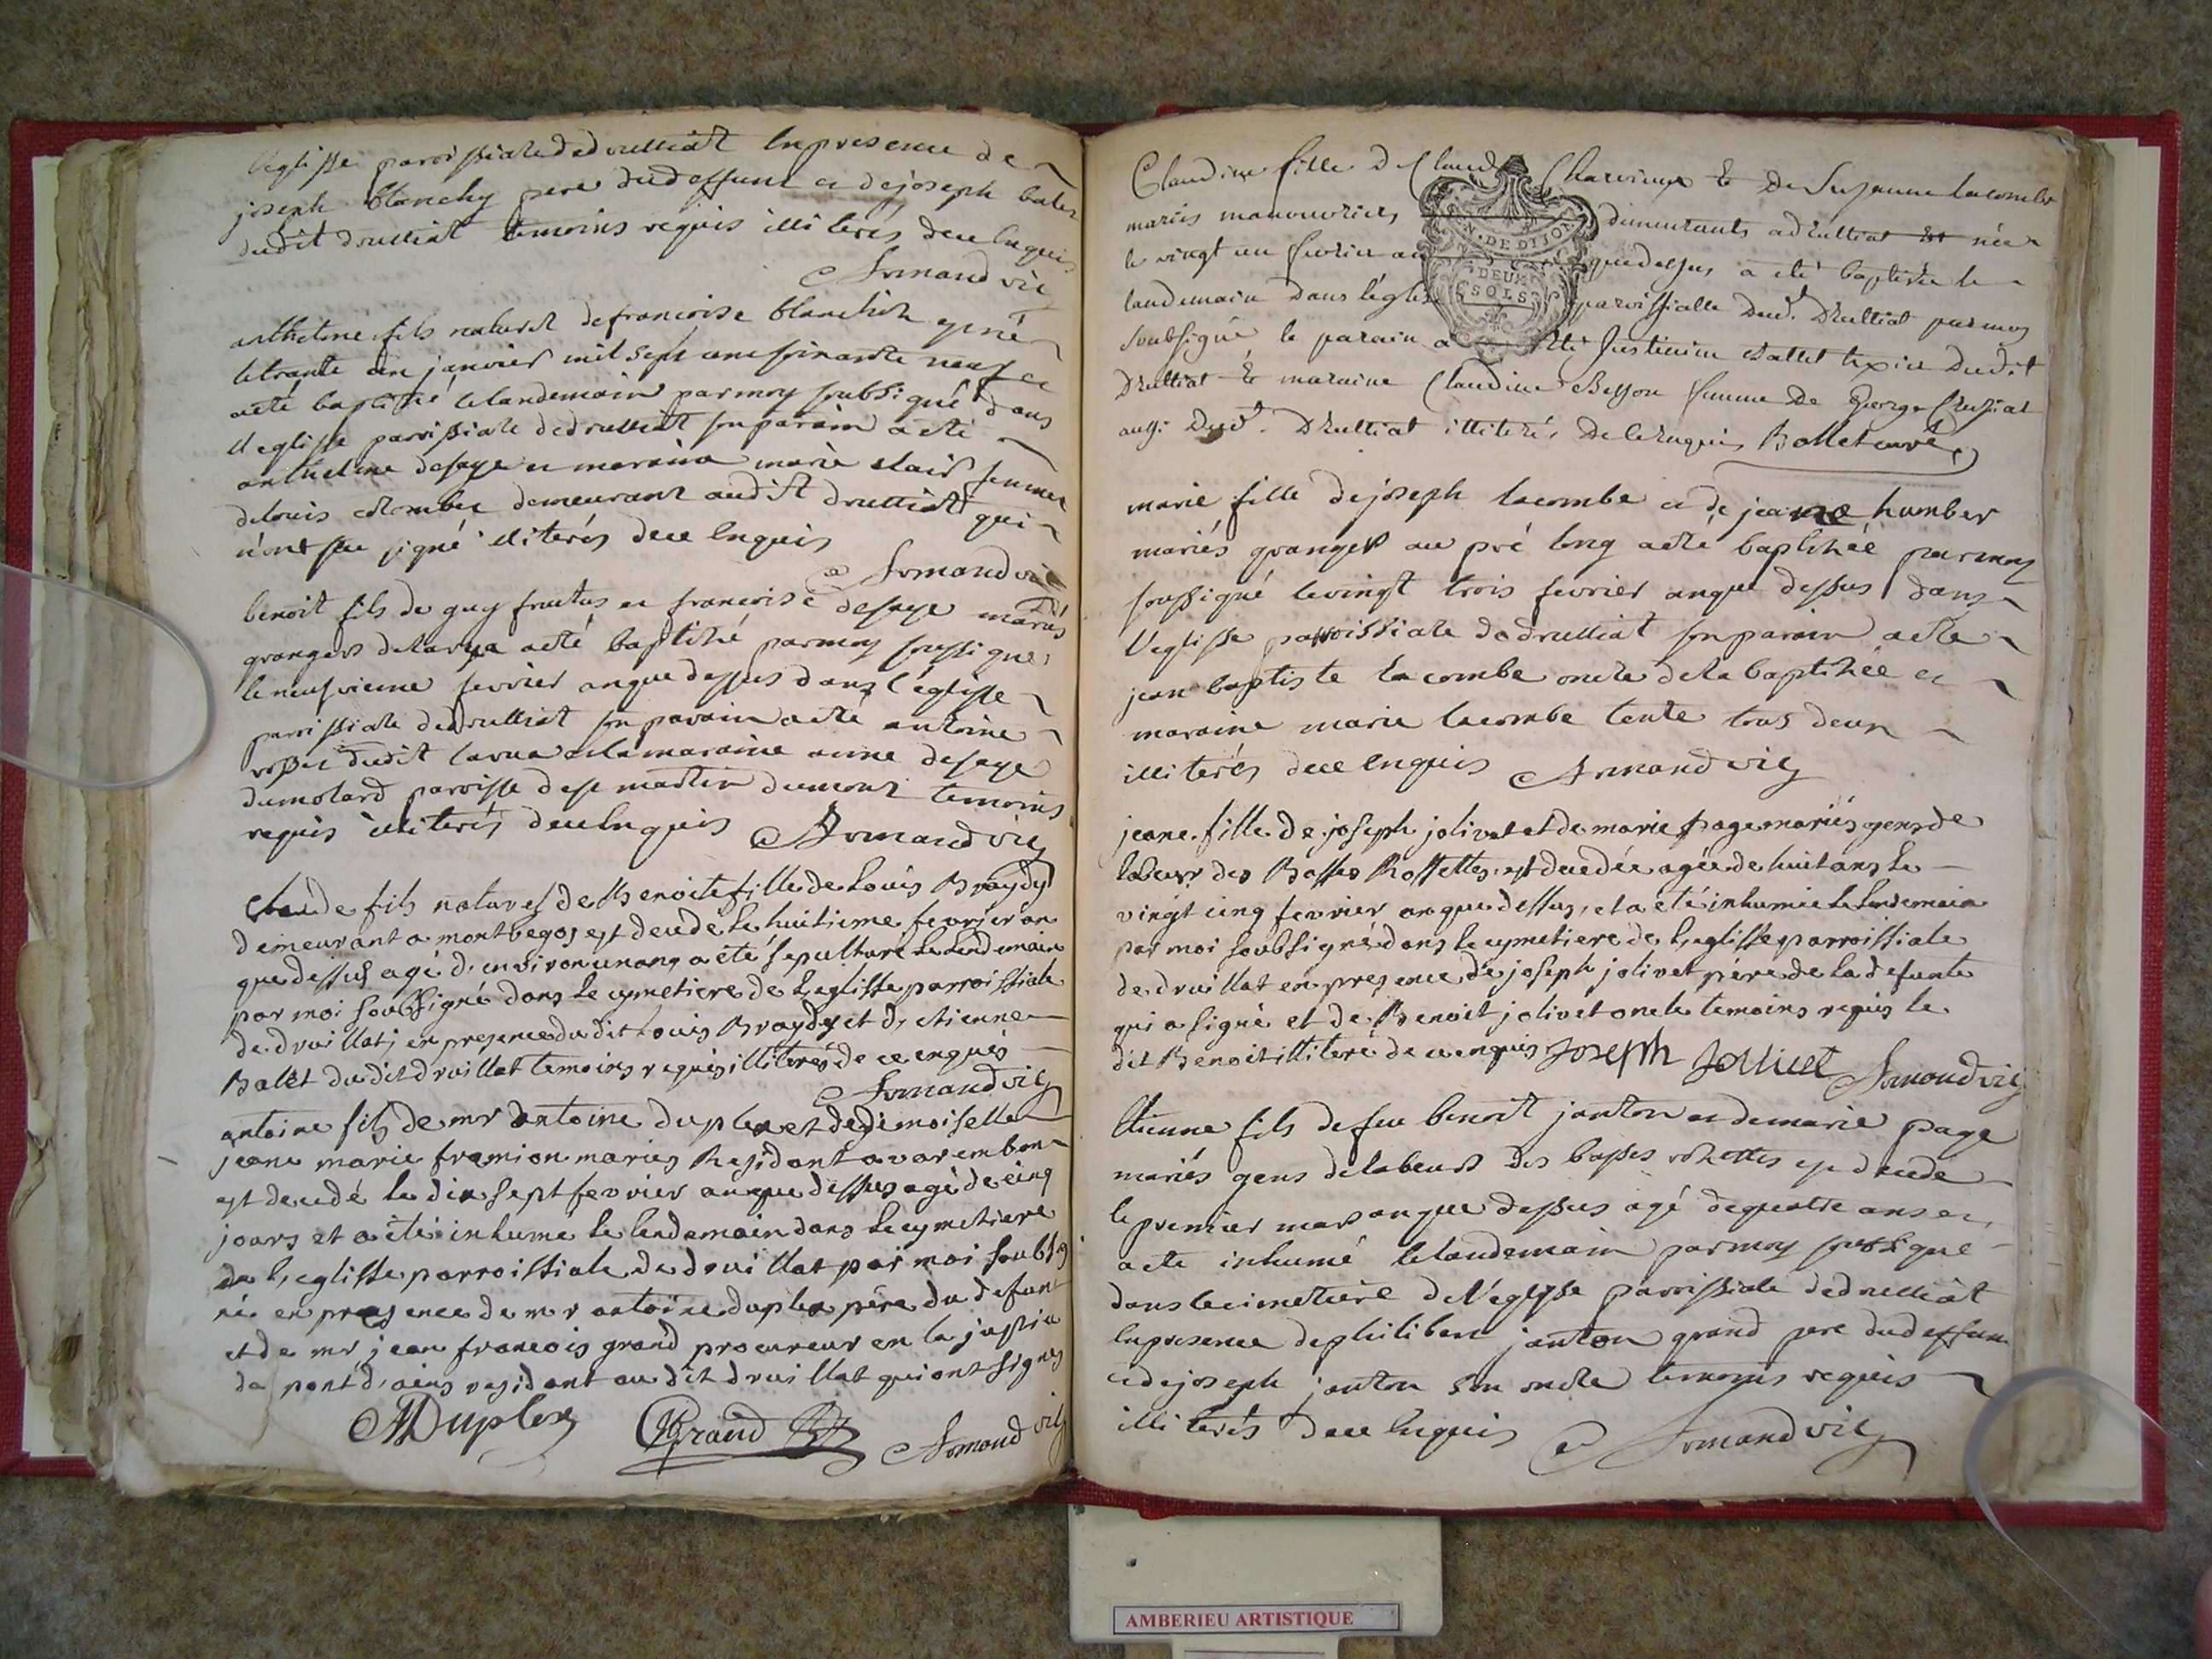 l'eglisse paroissiale de druilliat en presence de
joseph blanchy pere dudeffunt et de joseph balet
dudit druilliat temoins requis illiterés de ce enquis
Armand vic
anthelme fils naturel de francoise blanchin est né
le trante un janvier mil sept cent soixante neuf et
a eté baptisé le landemain par moy soubsigné dans
l'eglisse paroissiale de druilliat son parain a eté
anthelme desaye et maraina marie clair femme
de louis colomber demeurant audist druilliat qui
n'ont seu signé illiterés de ce enquis
Armand vic
benoit fils de guy fructus et francoise desaye mariés
grangers de larua a eté baptisé par moy soussigné
le neufvieme fevrier an que dessus dans l'eglisse
paroissiale de druilliat son parain a eté antoine
dudit larua et la maraine anne desaye
dumolard paroisse de st martin dumont temoins
requis illiterés de ce enquis Armand vic
Claude fils naturel de Benoite fille de Louis Braydy
demeurant a montbegos est decede le huitieme fevrier an
que dessus agé d'environ un ans a été sepulturé le lendemain
par moi soubsigné dans le cymetiere de l'eglisse parroissiale
de druillat, en presence du dit Louis Braydy et d'etienne
Balet du dit druillat temoins requis illiterés de ce enquis
Armand vic
antoine fils de mr antoine duplex et de demoiselle
jeane marie framion mariés Residant a varembon
est decedé le dix sept fevrier an que dessus agé de cinq
jours et a été inhumé le lendemain dans le cymetiere
de l'eglisse parroissiale de druillat par moi soubsig
né en presence de mr antoine duplex père du defunt
et de mr jean francois grand procureur en la justice
de pont d'ains residant au dit druillat qui ont signés
Duplex Grand Armand vic
Claudine fille de Claude Charvieux & de Suzanne lacombe
mariés manouvriers demeurants a druilliat est née
le vingt un fevrier an que dessus a eté baptisée le
landemain dans l'église paroissialle dud. Druilliat par moy
soubsigné le parain a eté Justinien Ballet texier dudit
Druilliat & maraine Claudine Besson femme de George Crusiat
aussi dud. Druilliat illiterés de ce enquis Bollet curé
GEN. DE DIJON
DEUX
SOLS
marie fille de joseph lacombe et de jeane humber
mariés granger au pré long a eté baptisée par moy
soussigné le vingt trois fevrier an que dessus dans
l'eglisse paroissiale de druilliat son parain a eté
jean baptiste lacombe oncle de la baptisée et
maraine marie lacombe tente tous deux
illiterés de ce enquis Armand vic
jeane fille de joseph jolivet et de marie page mariés gens de
labeur des Basses Rossettes, est decedée agée de huit ans le
vingt cinq fevrier an que dessus, et a été inhumée le lendemain
par moi soubsigné dans le cymetiere de l'eglisse parroissiale
de druillat en presence de joseph jolivet père de la defunte
qui a signé et de Benoit jolivet oncle temoins requis le
dit Benoit illiteré de ce enquis Joseph Jolliuet Armand vic
Etienne fils de feu benoit janton et de marie page
mariés gens de labeurs des basses rosettes est decede
le premier mars an que dessus agé de quatre ans et
a ete inhumé le landemain par moy soubsigné
dans le cimetiere de l'eglisse paroissiale de druilliat
en presence de philibert janton grand pere dudeffunt
et de joseph janton son oncle temoins requis
illiterés de ce enquis Armand vic
AMBERIEU ARTISTIQUE